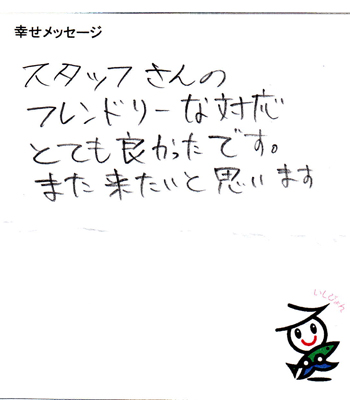 幸せメッセージ
スタッフさんの
フレンドリーな対応
とても良かったです。
また来たいと思います